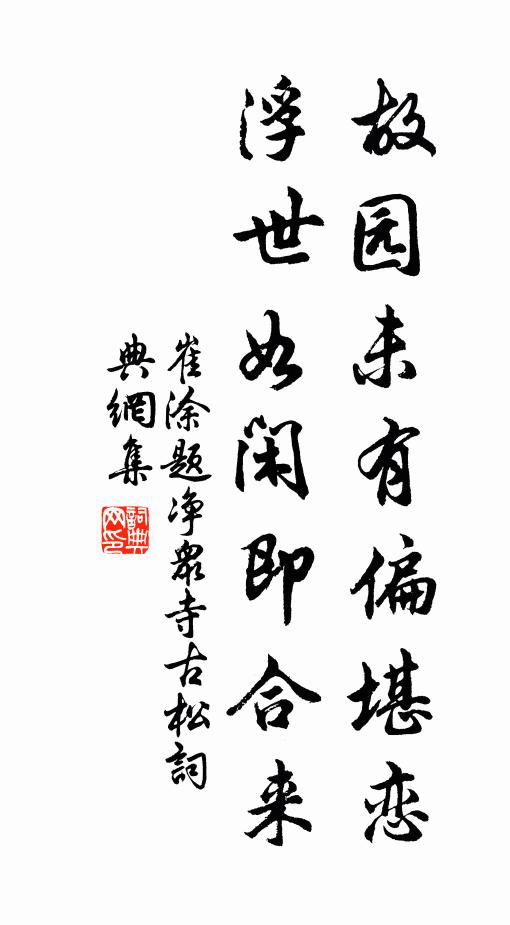 故园未有偏堪恋
浮世如闲即合来
崔涂题净眾寺古松詞
典網集
詞典
网印